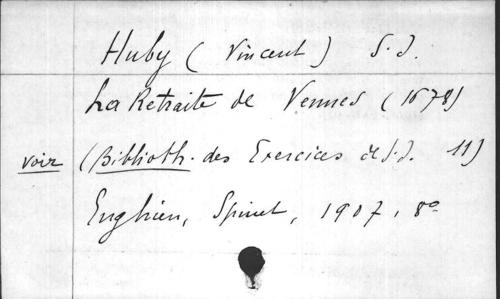 Huby (Vincent) S.J.
La Retraite de Vennes (1678)
voir (Biblioth. des Exercices de S.J. 11)
Enghien, Spinet, 1907, 8°